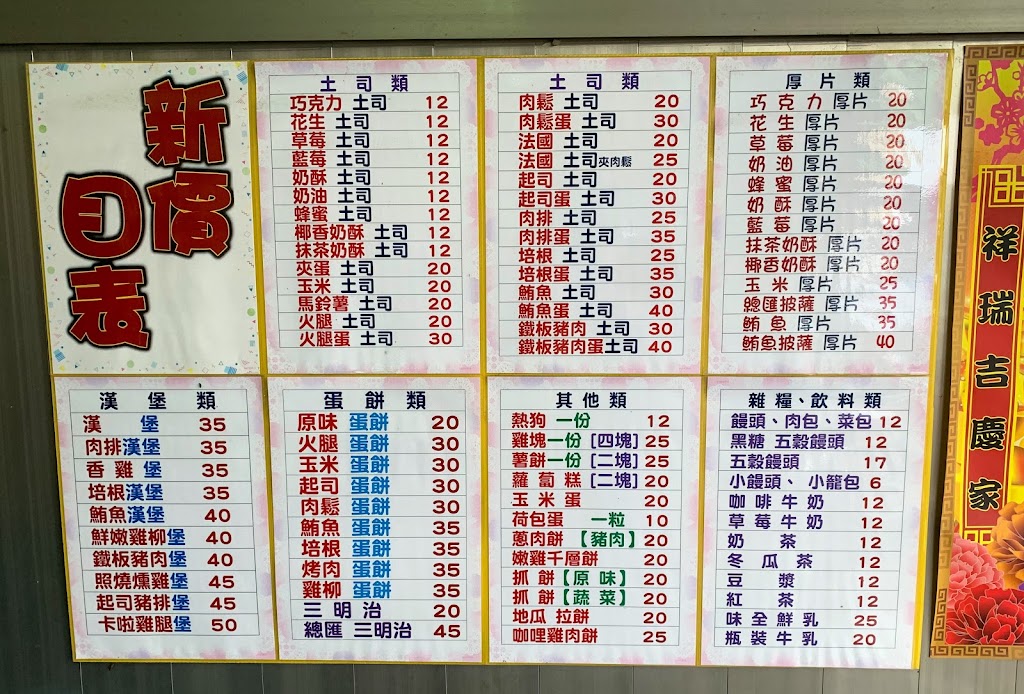 新價
目表
土司類
巧克力 土司 12
花生 土司 12
草莓 土司 12
藍莓 土司 12
奶酥 土司 12
奶油 土司 12
蜂蜜 土司 12
椰香奶酥 土司 12
抹茶奶酥 土司 12
夾蛋 土司 20
玉米 土司 20
馬鈴薯 土司 20
火腿 土司 20
火腿蛋 土司 30
土司類
肉鬆 土司 20
肉鬆蛋 土司 30
法國 土司 20
法國 土司夾肉鬆 25
起司 土司 20
起司蛋 土司 30
肉排 土司 25
肉排蛋 土司 35
培根 土司 25
培根蛋 土司 35
鮪魚 土司 30
鮪魚蛋 土司 40
鐵板豬肉 土司 30
鐵板豬肉蛋土司 40
厚片類
巧克力 厚片 20
花生 厚片 20
草莓 厚片 20
奶油 厚片 20
蜂蜜 厚片 20
奶酥 厚片 20
藍莓 厚片 20
抹茶奶酥 厚片 20
椰香奶酥 厚片 20
玉米 厚片 25
總匯披薩 厚片 35
鮪魚 厚片 35
鮪魚披薩 厚片 40
漢堡類
漢堡 35
肉排漢堡 35
香雞堡 35
培根漢堡 35
鮪魚漢堡 40
鮮嫩雞柳堡 40
鐵板豬肉堡 40
照燒燻雞堡 45
起司豬排堡 45
卡啦雞腿堡 50
蛋餅類
原味 蛋餅 20
火腿 蛋餅 30
玉米 蛋餅 30
起司 蛋餅 30
肉鬆 蛋餅 30
鮪魚 蛋餅 35
培根 蛋餅 35
烤肉 蛋餅 35
雞柳 蛋餅 35
三明治 20
總匯 三明治 45
其他類
熱狗 一份 12
雞塊一份 [四塊] 25
薯餅一份 [二塊] 25
蘿蔔糕 [二塊] 20
玉米蛋 20
荷包蛋 一粒 10
蔥肉餅 【豬肉】 20
嫩雞千層餅 20
抓餅【原味】 20
抓餅【蔬菜】 20
地瓜 拉餅 20
咖哩雞肉餅 25
雜糧、飲料類
饅頭、肉包、菜包 12
黑糖 五穀饅頭 12
五穀饅頭 17
小饅頭、小籠包 6
咖啡牛奶 12
草莓牛奶 12
奶茶 12
冬瓜茶 12
豆漿 12
紅茶 12
味全鮮乳 25
瓶裝牛乳 20
祥瑞吉慶家